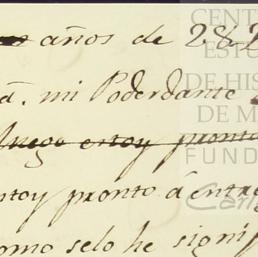 años de 282
á. mi Poderdante
luego estoy pronto
stoy pronto á entre
como selo he signif
CENT
EST
DE HIS
DE M
FUND